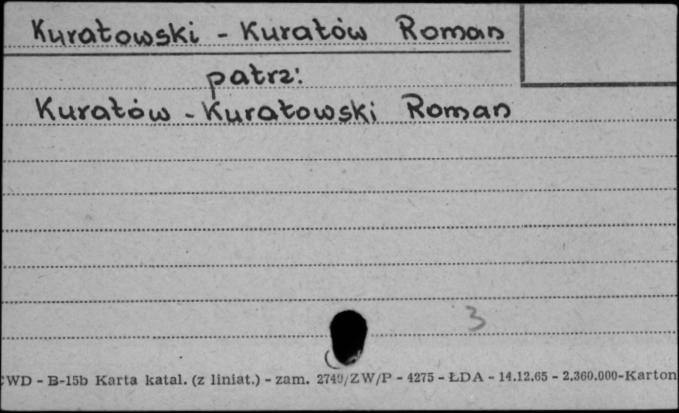 Kuratowski - Kuratów Roman
patrz:
Kuratów - Kuratowski Roman
3
CWD - B-15b Karta katal. (z liniat.) - zam. 2740/ZW/P - 4275 - ŁDA - 14.12.65 - 2.360.000-Karton